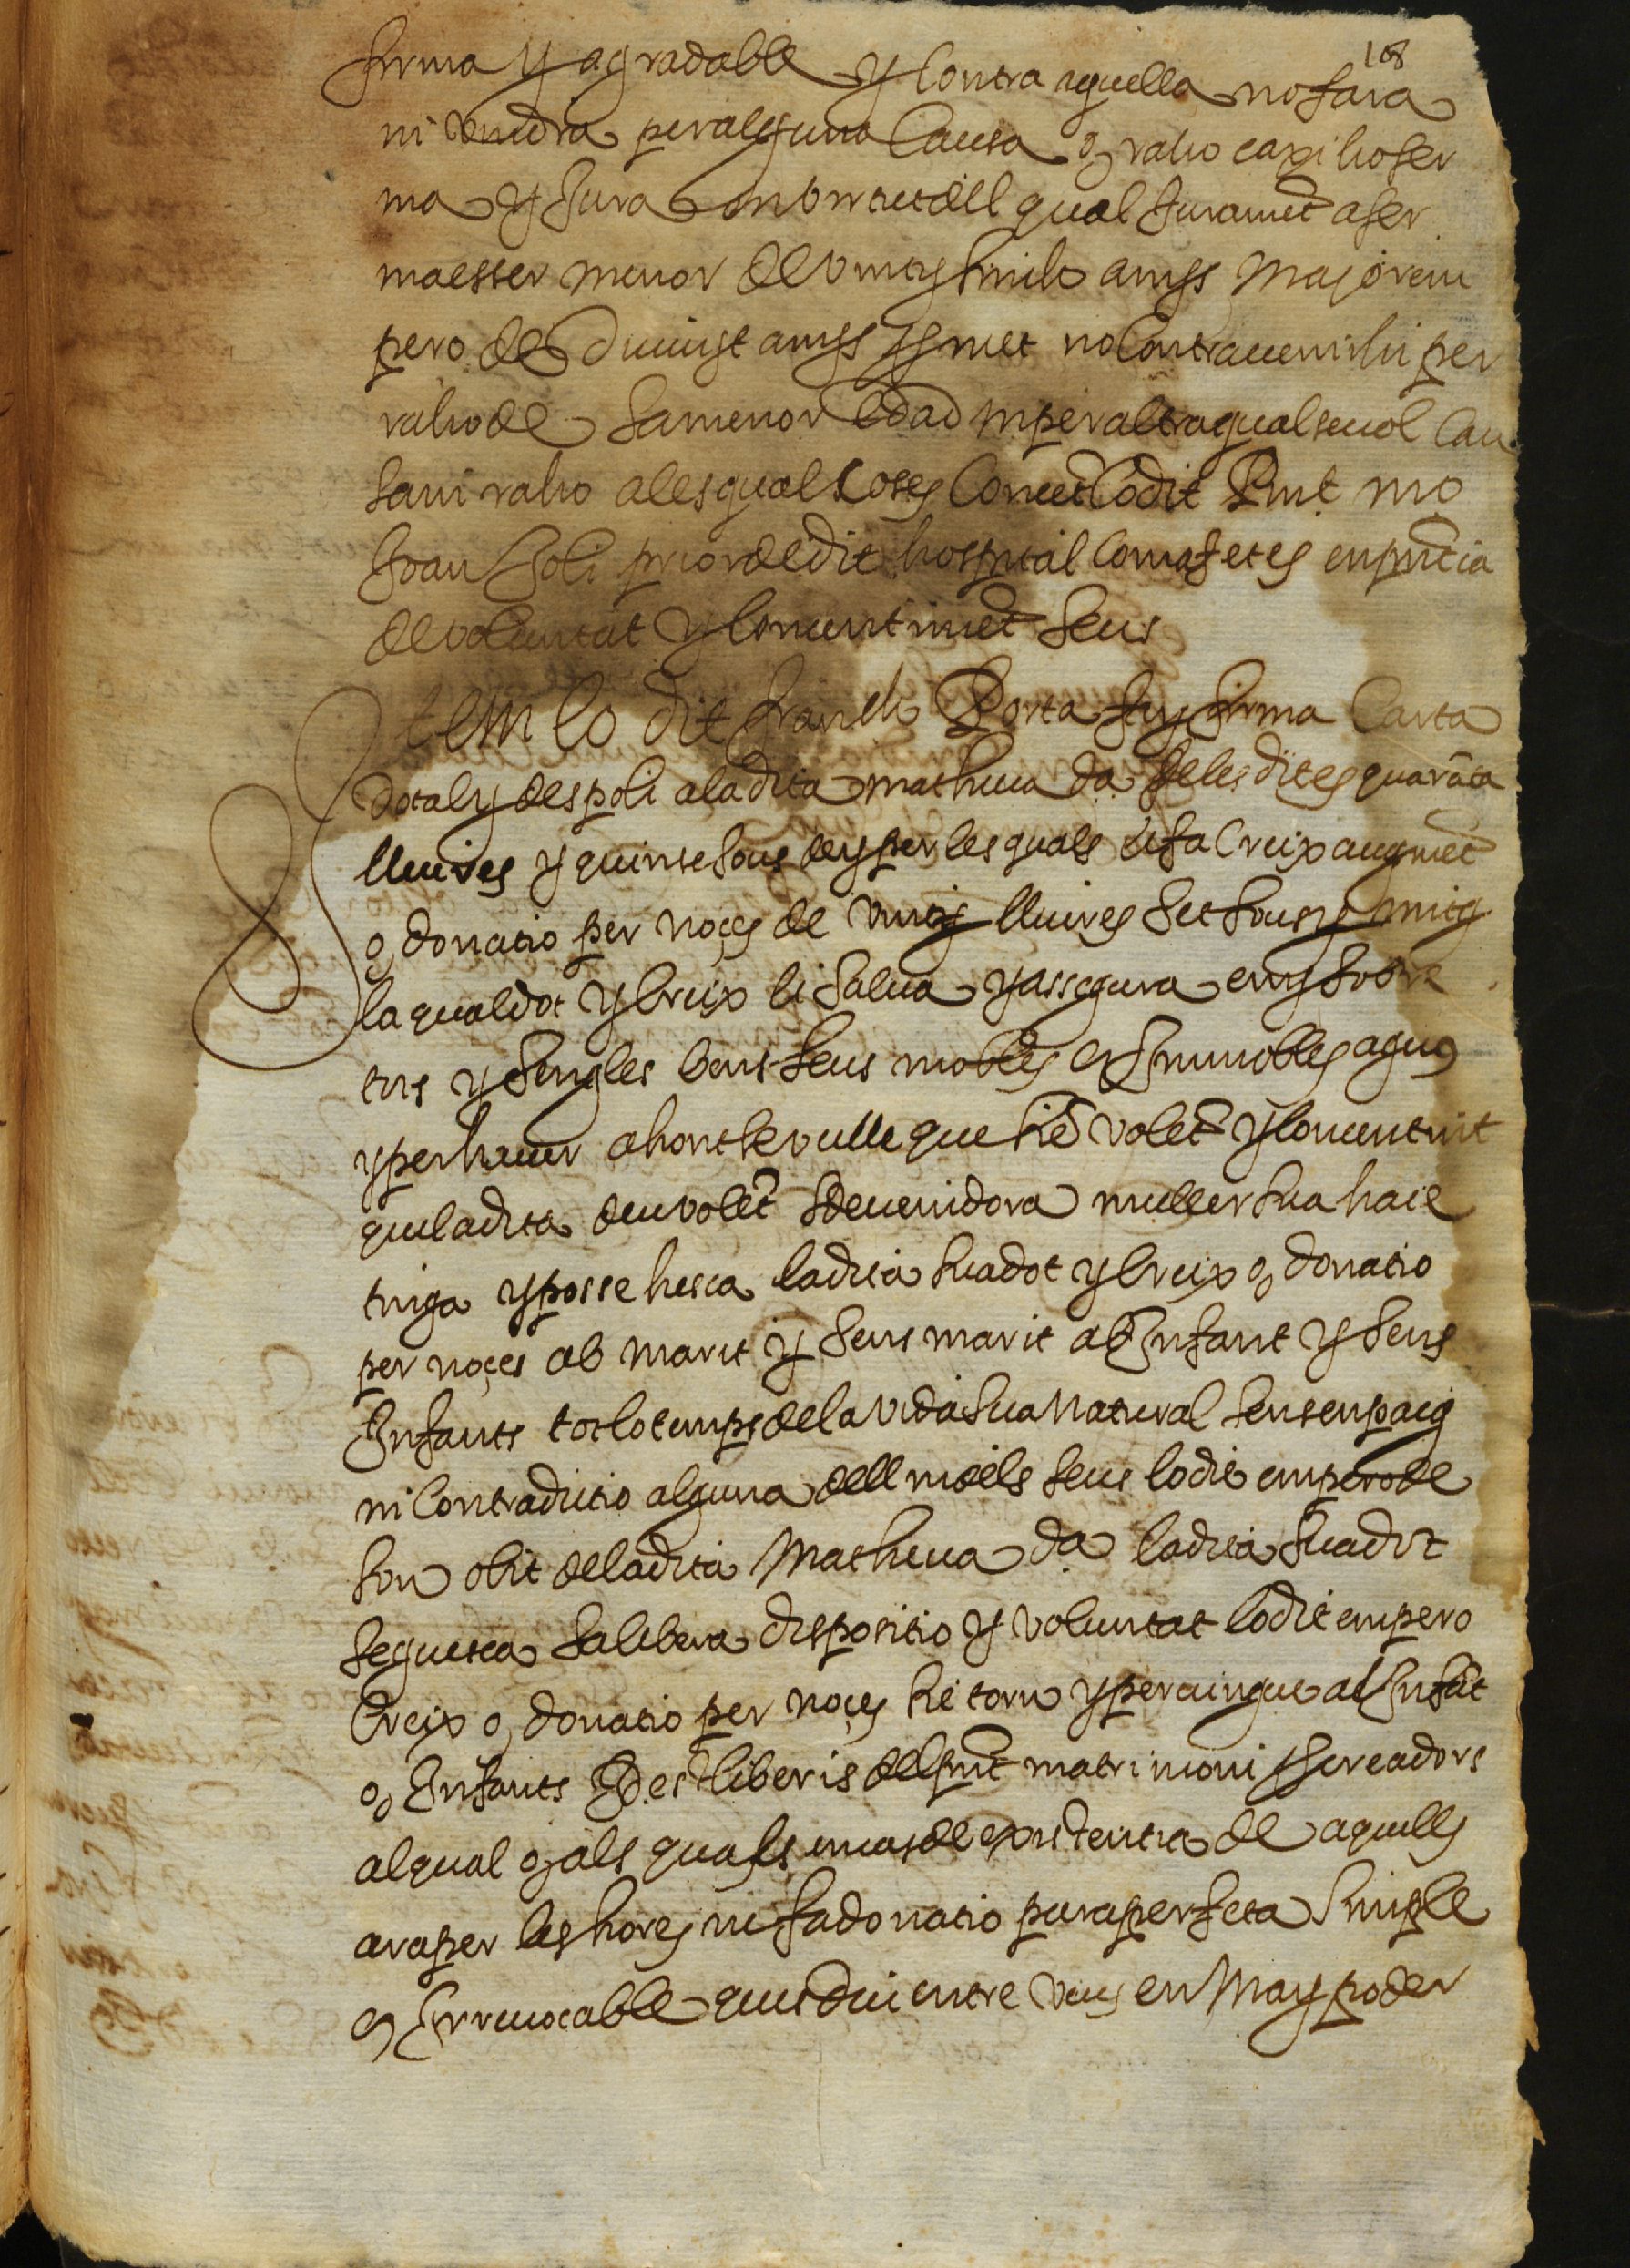 108
ferma y agradable y Contra aquella no fara
ni vindra per alguna Causa o, raho e axi ho fer
ma y Jura en virtut dell qual Juramēt afer
ma esser menor de vint y sinch anys Major em
pero de divuyt anys y met no Contravenir hi per
raho de sa menor edad ni per altra qual sevol Cau
sa ni raho a les quals Coses Consent lo dit Rnt mo
Joan soli prior de dit hospital Com a fetes en pntia
de voluntat y Consentimēt seus
Item lo dit franch Porta fa y firma Carta
dotal y de spoli a la dita matheua da de les dites quarāta
lliures y quinse sous de y per les quals li fa Creix augmēt
o, donatio per noçes de vint lliures set sous y mitg
la qual dot y Creix li salva y assegura en y sobre
tots y sengles bens seus mobles e Immobles aguts
y per haver a hont se vulle que sie volēt y Consentint
que la dita Deu volēt sdevenidora muller sua haie
tinga y possehesca la dita sua dot y Creix o, donatio
per noçes ab marit y sens marit ab Infant y sens
Infants tot lo temps de la vida sua natural sens enpaig
ni Contradictio alguna dell ni dels seus lo die empero de
son obit de la dita Matheua da la dita sua dot
seguesca sa libera dispositio y voluntat lo dit empero
Creix o, donatio per noçes sie torn y pervingue al Infāt
o, Infants del pnt matrimoni procreadors
al qual o, als quals en cas de existentia de aquells
ara per les hores ne fa donatio pura perfeta simple
e Irrevocable ques diu entre vius en Ma y poder